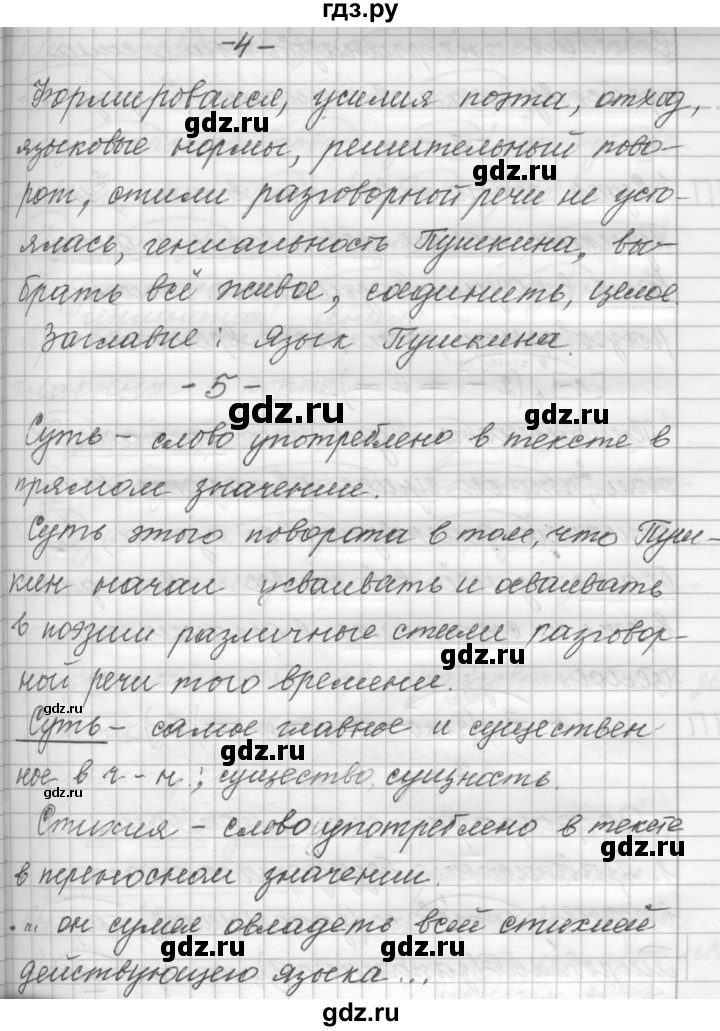 гдз.ру
-4-
Формировался, усилия поэта, отход,
gdz.ru
языковые нормы, решительный пово-
gdz.ru
рот, стили разговорной речи не усто-
ялась, гениальность Пушкина, вы-
gdz.ru
брать всё живое, соединить, целое.
Заглавие: Язык Пушкина.
-5-
gdz.ru gdz.ru
Суть - слово употреблено в тексте в
прямом значении.
Суть этого поворота в том, что Пуш-
кин начал усваивать и осваивать
в поэзии различные стили разговор-
gdz.ru
ной речи того времени.
Суть - самое главное и существен-
gdz.ru
ное в ч-н; существо, сущность.
gdz.ru
Стихия - слово употреблено в тексте
gdz.ru
в переносном значении.
... он сумел овладеть всей стихией
gdz.ru gdz.ru
действующего языка...
gdz.ru